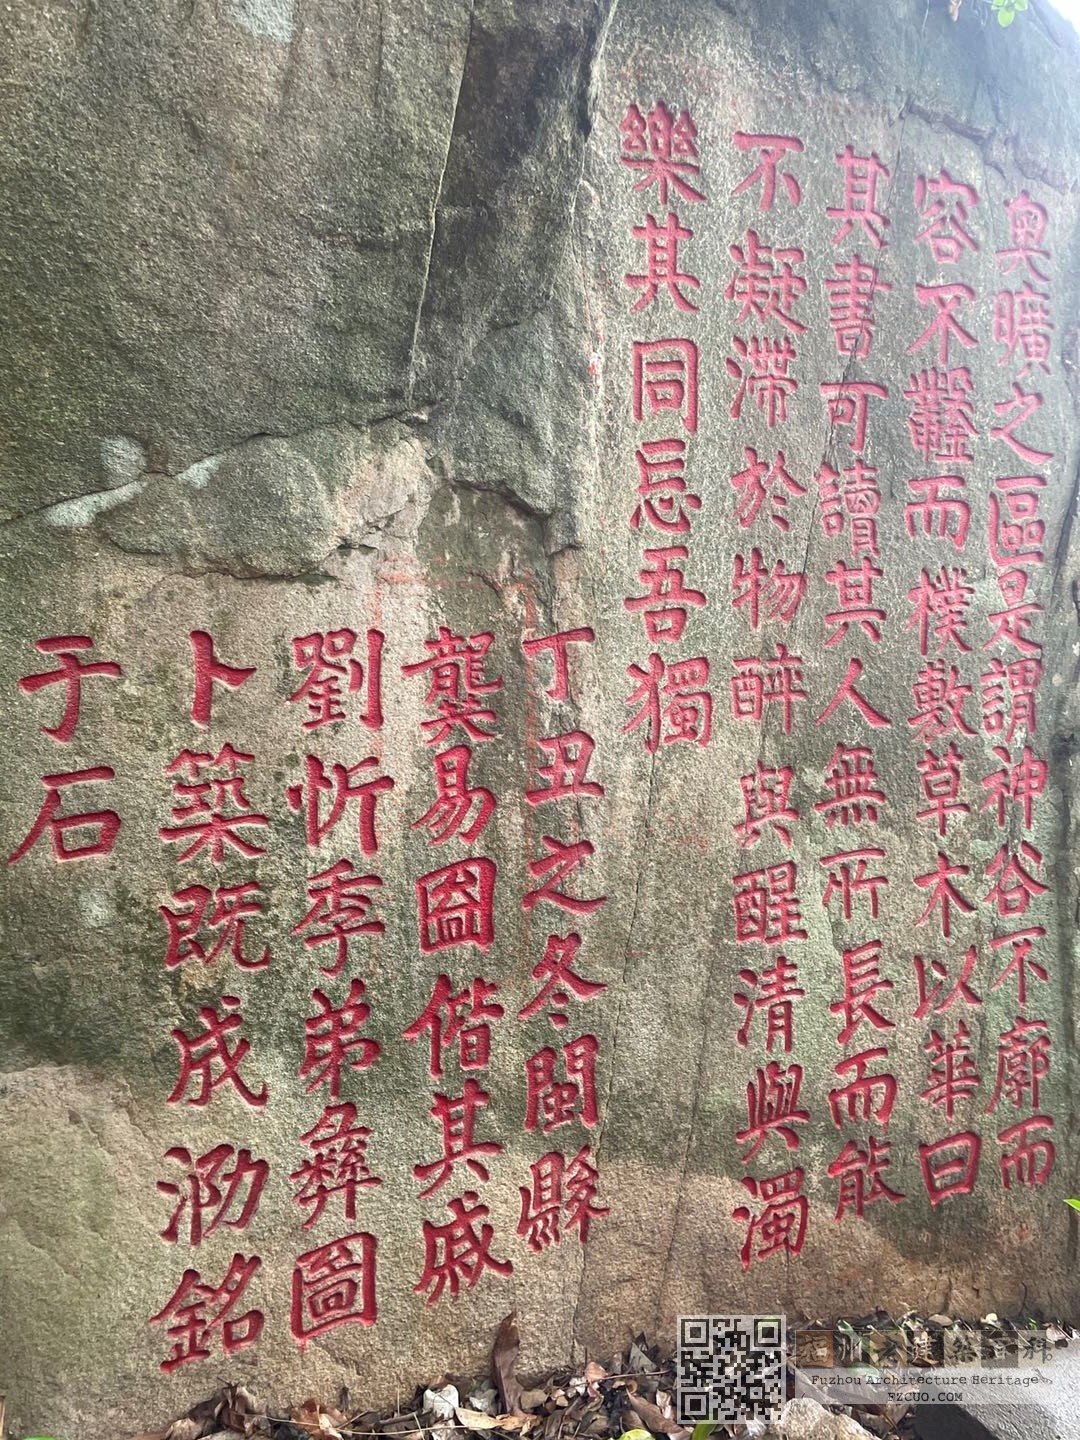 奥曠之區是謂神谷不廓而
容不鑿而樸敷草木以華曰
其書可讀其人無所長而能
不凝滯於物醉與醒清與濁
樂其同忘吾獨
丁丑之冬閩縣
龔易圖偕其戚
劉忻季弟彝圖
卜築既成泐銘
于石
福州老建築百科
Fuzhou Architecture Heritage
FZCUO.COM